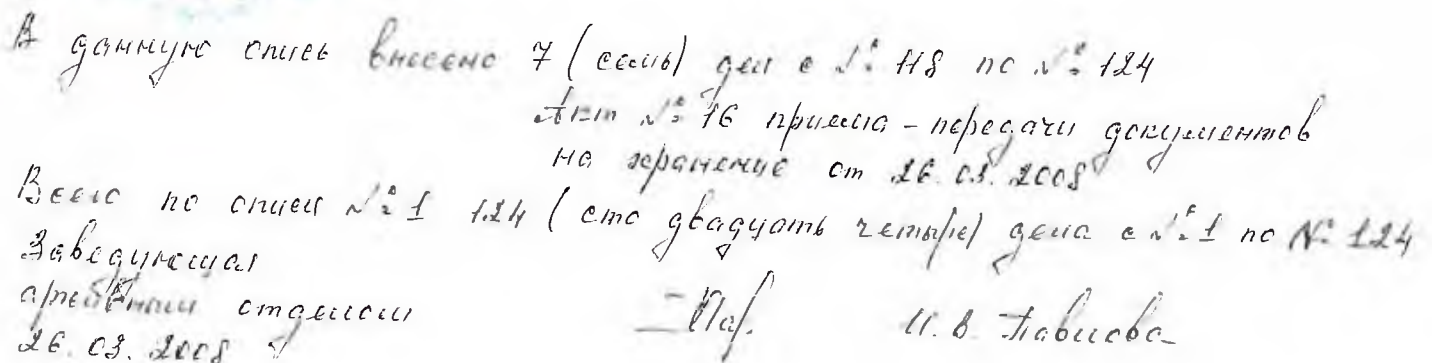 В данную опись внесено 7 (семь) дел с № 118 по № 124
Акт № 16 приема-передачи документов
на хранение от 26.03.2008
Всего по описи № 1 124 (сто двадцать четыре) дела с № 1 по № 124
Заведующая
архивным отделом
И.В. Павлова
26.03.2008